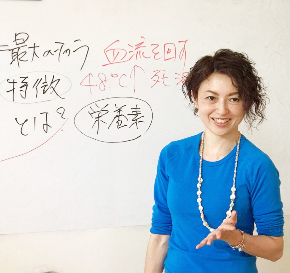 最大の
血流を回す
特徴 48℃↑ 死
とは?
栄養素